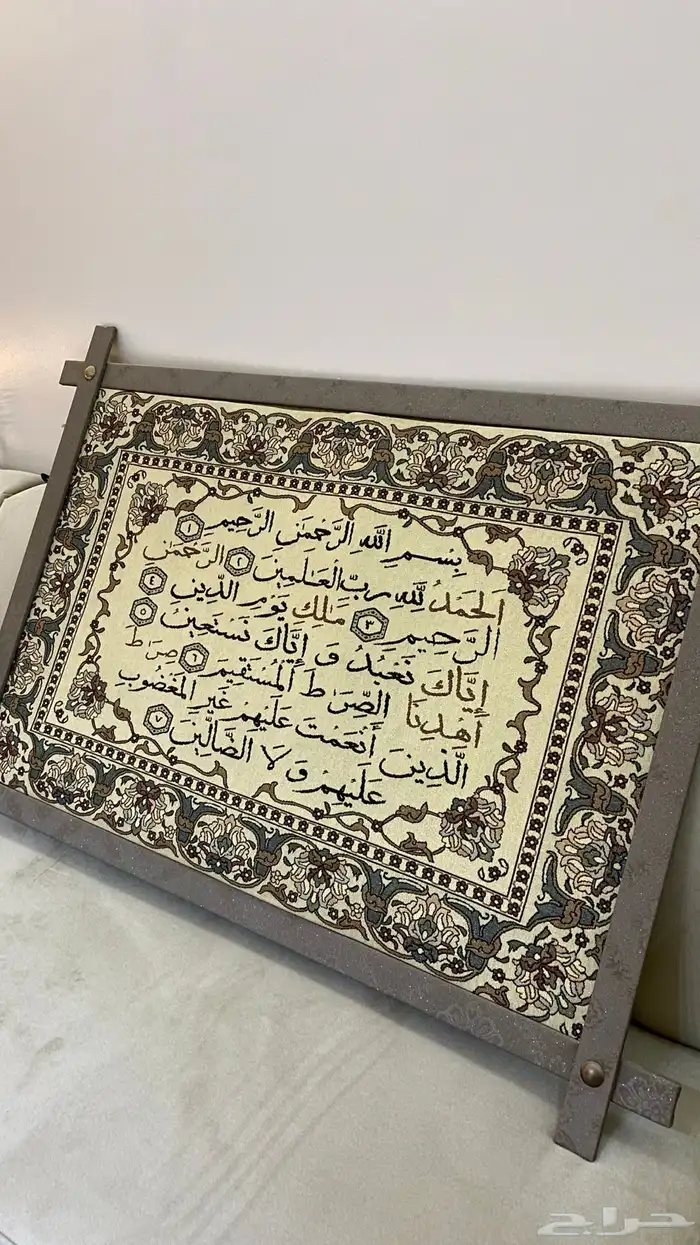 بِسْمِ اللهِ الرَّحْمَنِ الرَّحِيمِ ١
اَلْحَمْدُ لِلَّهِ رَبِّ الْعَالَمِينَ ٢ الرَّحْمَنِ
الرَّحِيمِ ٣ مَلِكِ يَوْمِ الدِّينِ ٤
إِيَّاكَ نَعْبُدُ وَ إِيَّاكَ نَسْتَعِينُ ٥
اَهْدِنَا الصِّرَاطَ الْمُسْتَقِيمَ ٦ صِرَاطَ
الَّذِينَ أَنْعَمْتَ عَلَيْهِمْ غَيْرِ الْمَغْضُوبِ
عَلَيْهِمْ وَ لَا الضَّالِّينَ ٧
حراج